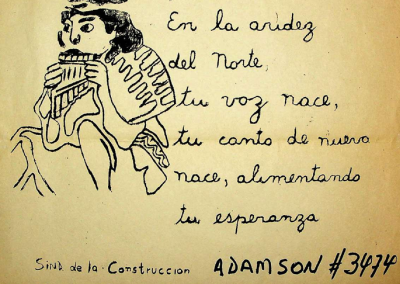 En la aridez
del Norte,
tu voz nace,
tu canto de nuevo
nace, alimentando
tu esperanza
Sind de la Construccion
ADAMSON #3474